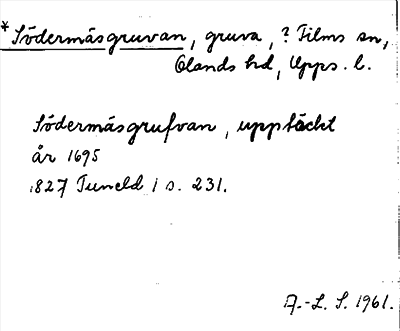 *Södermäsgruvan, gruva, ? Films sn,
Olands hd, Upps. l.
Södermäsgrufvan, upptäckt
år 1695
1827 Tuneld 1 s. 231.
A.-L. S. 1961.